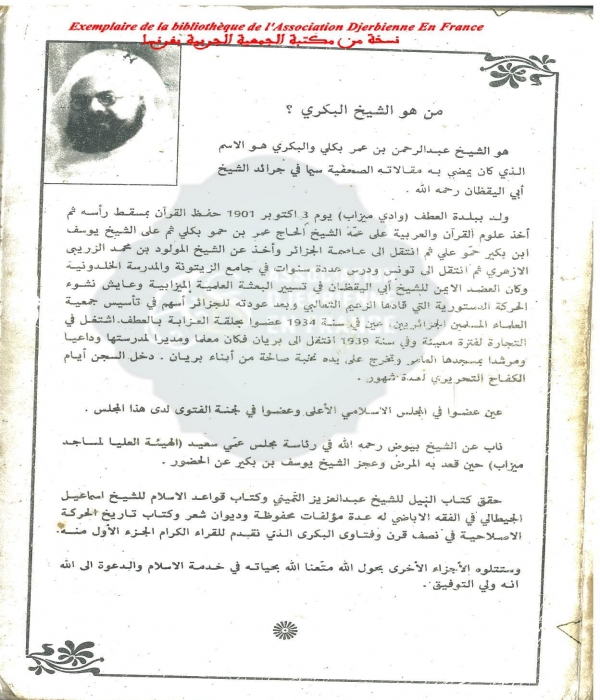 Exemplaire de la bibliothèque de l'Association Djerbienne En France
نسخة من مكتبة الجمعية الجربية بفرنسا
من هو الشيخ البكري ؟
هو الشيخ عبدالرحمن بن عمر بكلي والبكري هو الاسم
الذي كان يمضي به مقالاته الصحفية سيما في جرائد الشيخ
أبي اليقظان رحمه الله .
ولد ببلدة العطف (وادي ميزاب) يوم 3 اكتوبر 1901 حفظ القرآن بمسقط رأسه ثم
أخذ علوم القرآن والعربية على عمّه الشيخ الحاج عمر بن حمو بكلي ثم على الشيخ يوسف
ابن بكير حمّو علي ثم انتقل الى عاصمة الجزائر وأخذ عن الشيخ المولود بن محمد الزريبي
الازهري ثم انتقل الى تونس ودرس عددة سنوات في جامع الزيتونة والمدرسة الخلدونية
وكان العضد الايمن للشيخ أبي اليقظان في تسيير البعثة العلمية الميزابية وعايش نشوء
الحركة الدستورية التي قادها الزعيم الثعالبي وبعد عودته للجزائر أسهم في تأسيس جمعية
العلماء المسلمين الجزائريين . عين في سنة 1934 عضوا بحلقة العزابة بالعطف اشتغل في
التجارة لفترة معينة وفي سنة 1939 انتقل الى بريان فكان معلما ومديرا لمدرستها وداعيا
ومرشدا بمسجدها العامر وتخرج على يده نخبة صالحة من أبناء بريان . دخل السجن أيام
الكفاح التحريري لعدة شهور .
عين عضوا في المجلس الاسلامي الأعلى وعضوا في لجنة الفتوى لدى هذا المجلس .
ناب عن الشيخ بيوض رحمه الله في رئاسة مجلس عمّي سعيد (الهيئة العليا لمساجد
ميزاب) حين قعد به المرض وعجز الشيخ يوسف بن بكير عن الحضور .
حقق كتاب النيل للشيخ عبدالعزيز الثميني وكتاب قواعد الاسلام للشيخ اسماعيل
الجيطالي في الفقه الاباضي له عدة مؤلفات محفوظة وديوان شعر وكتاب تاريخ الحركة
الاصلاحية في نصف قرن وفتاوى البكرى الذي نقدم للقراء الكرام الجزء الأول منه .
وستتلوه الأجزاء الأخرى بحول الله متّعنا الله بحياته في خدمة الاسلام والدعوة الى الله
انه ولي التوفيق .